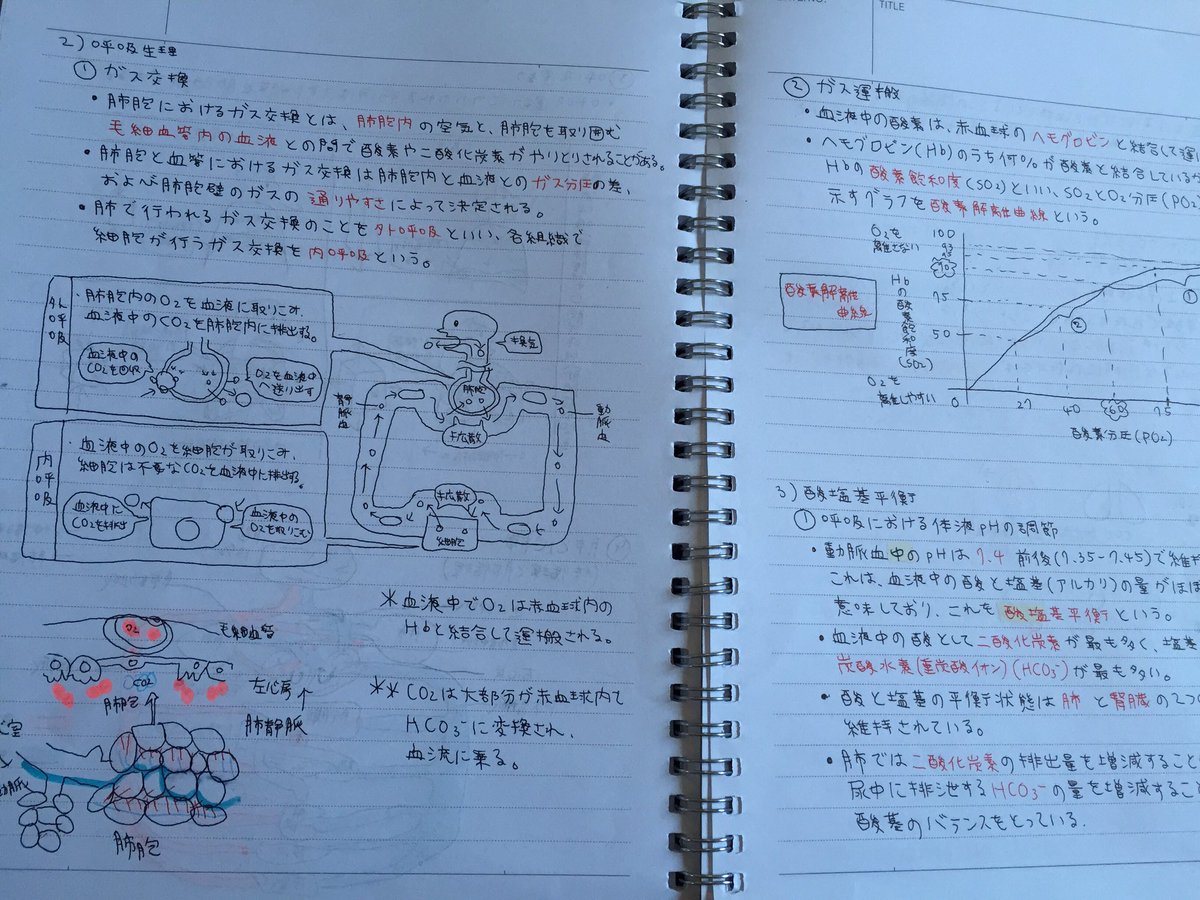 2) 呼吸生理
① ガス交換
・肺胞におけるガス交換とは、肺胞内の空気と、肺胞を取り囲む
毛細血管内の血液との間で酸素や二酸化炭素がやりとりされることがある。
・肺胞と血管におけるガス交換は肺胞内と血液とのガス分圧の差、
および肺胞壁のガスの通りやすさによって決定される。
・肺で行われるガス交換のことを外呼吸といい、各組織で
細胞が行うガス交換を内呼吸という。
外呼吸
・肺胞内のO2を血液に取りこみ、
血液中のCO2を肺胞内に排出する。
血液中の
CO2を回収
O2を血液中
へ送り出す
換気
肺胞
静脈血
動脈血
拡散
内呼吸
・血液中のO2を細胞が取りこみ、
細胞は不要なCO2を血液中に排出する。
血液中に
CO2を排出
血液中の
O2を取りこむ
拡散
細胞
O2
毛細血管
CO2
肺胞
左心房
肺静脈
肺胞
*血液中でO2は赤血球内の
Hbと結合して運搬される。
**CO2は大部分が赤血球内で
HCO3-に変換され、
血流に乗る。
TITLE
② ガス運搬
・血液中の酸素は、赤血球のヘモグロビンと結合して運
・ヘモグロビン(Hb)のうち何%が酸素と結合している
Hbの酸素飽和度(SO2)といい、SO2とO2分圧(PO2)
示すグラフを酸素解離曲線という。
酸素解離
曲線
O2を
離さない
100
93
90
75
50
Hbの酸素飽和度(SO2)
O2を
離しやすい
0
27
40
60
75
①
②
酸素分圧(PO2)
3) 酸塩基平衡
① 呼吸における体液pHの調節
・動脈血中のpHは7.4前後(7.35-7.45)で維持
これは、血液中の酸と塩基(アルカリ)の量がほぼ
意味しており、これを酸塩基平衡という。
・血液中の酸として二酸化炭素が最も多く、塩基
炭酸水素(重炭酸イオン)(HCO3-)が最も多い。
・酸と塩基の平衡状態は肺と腎臓の2つ
維持されている。
・肺では二酸化炭素の排出量を増減すること
尿中に排泄するHCO3-の量を増減すること
酸基のバランスをとっている.